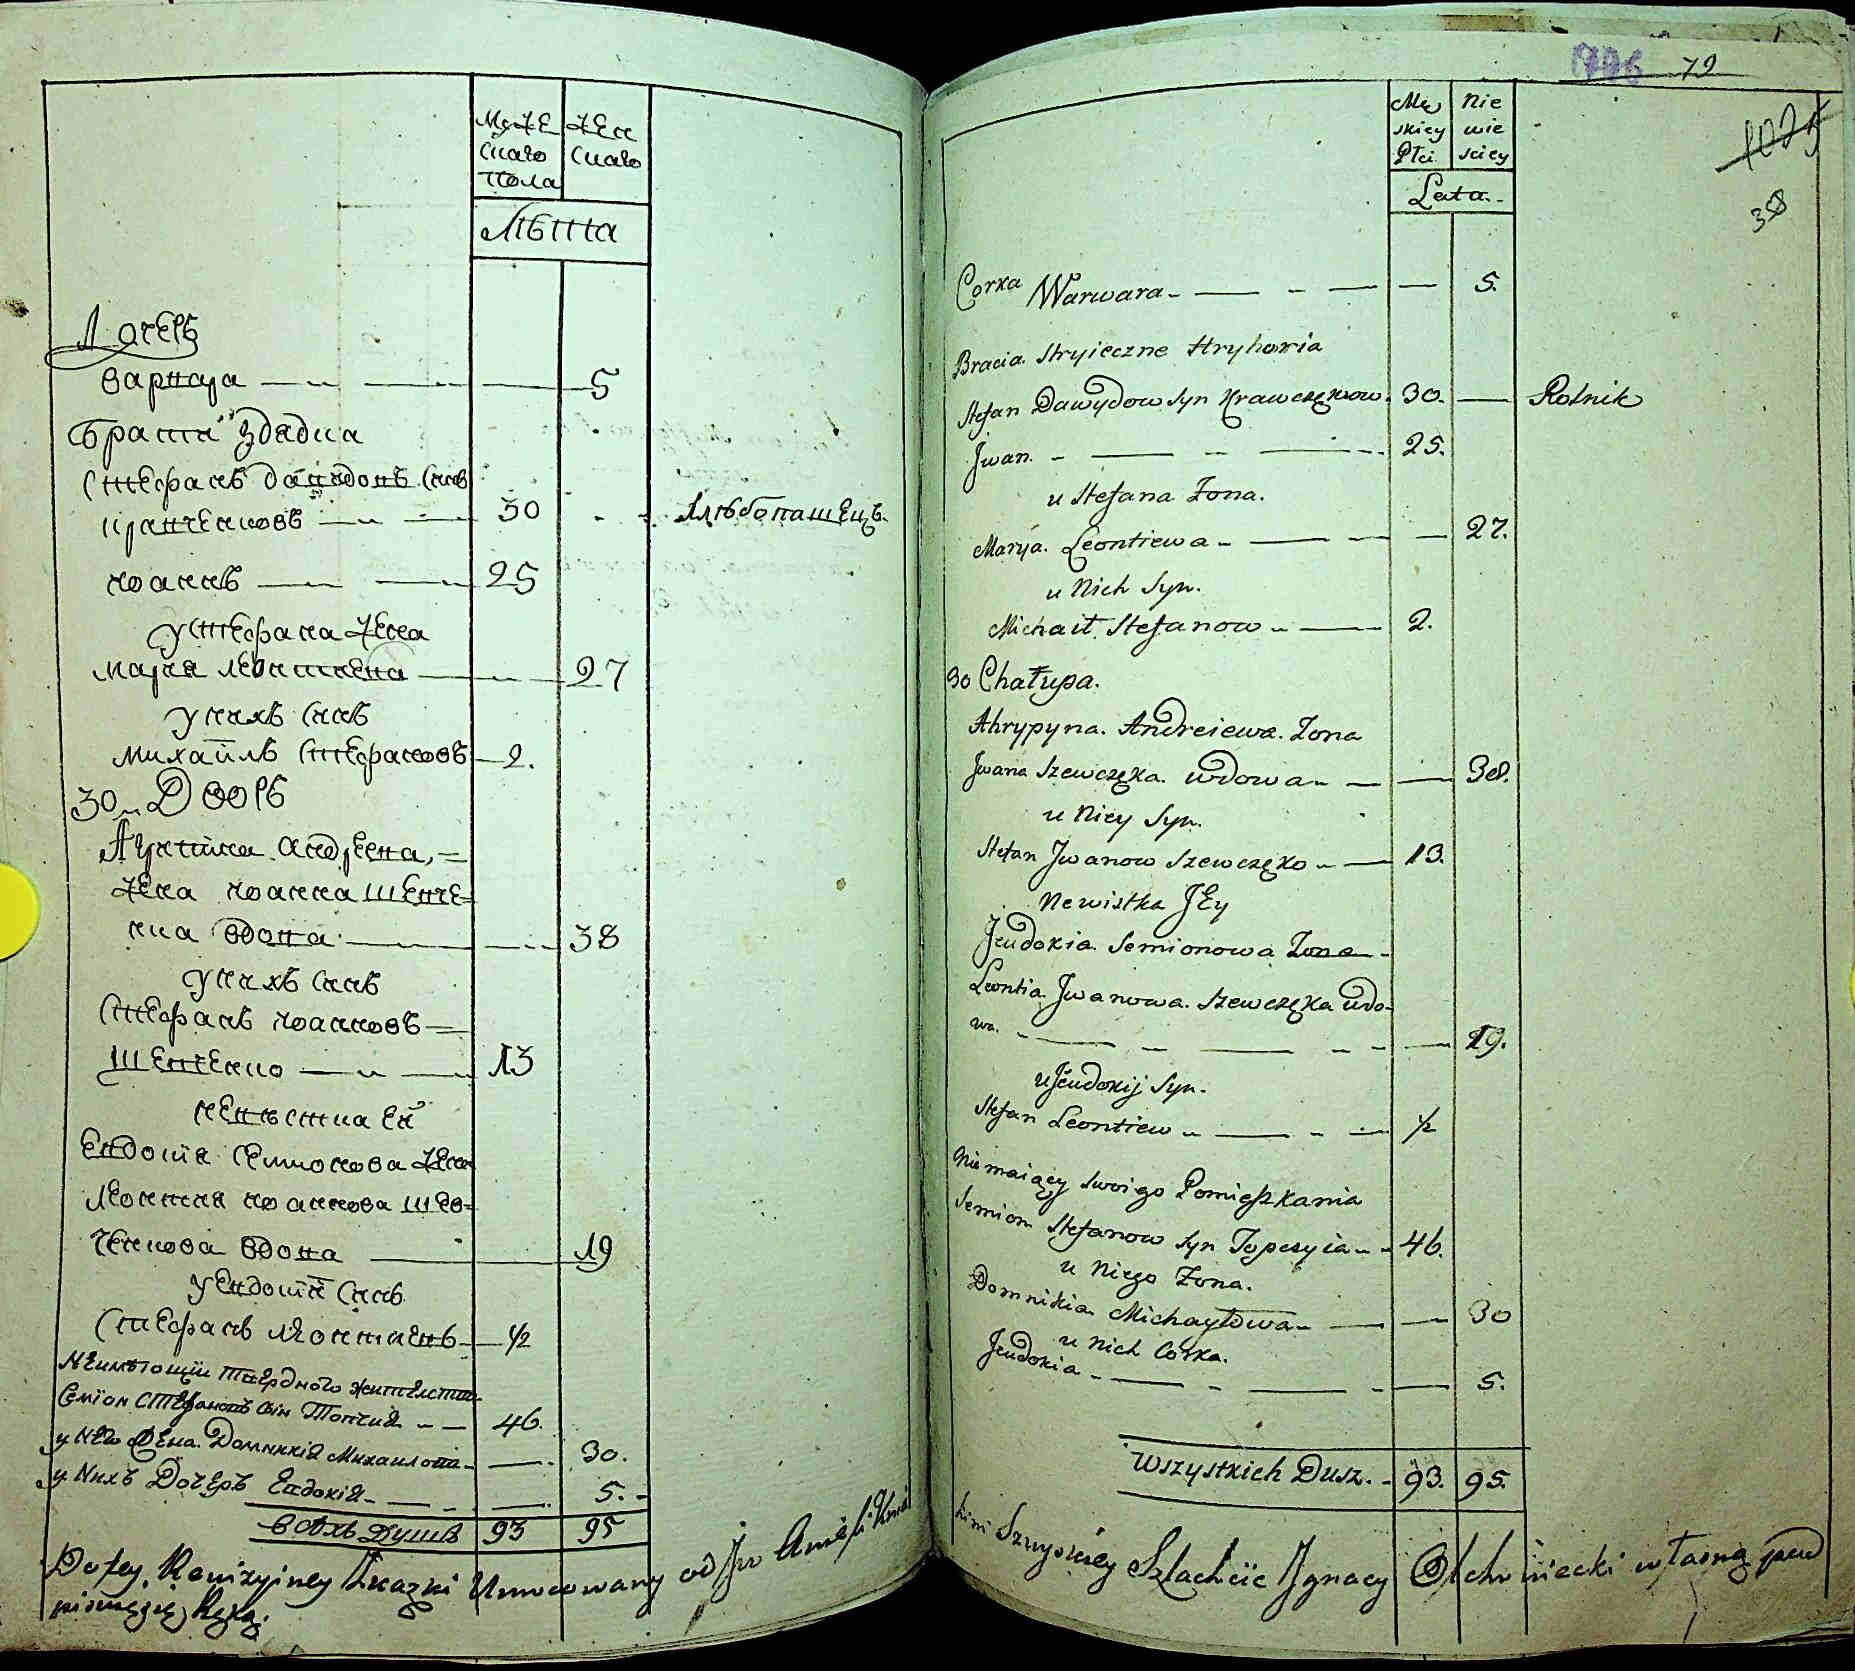 Мꙋже
скаго
пола
Жен
скаго
Лѣта
Дочерь
Варвара 5
Братя здядка
Стефанъ давидовъ синъ
кравченковъ 30 Хлѣбопашецъ
иоаннъ 25
у стефана жена
мария леонтиева 27
у нихъ синъ
михайлъ стефановъ 2.
30 Дворъ
Агрипина андреева,
жена иоанна шевче-
нка вдова 38
у нихъ синъ
Стефанъ иоанновъ
шевченко 13
невѣстка ей
Евдокия семионова жена
леонтия иоаннова шев-
ченкова вдова 19
у Евдокии синъ
Стефанъ леонтиевъ ½
Неимѣющии твердного жителства
Семион Стефановъ син Топчия 46.
у Него жена Домникия Михаилова 30.
у Нихъ Дочеръ Евдокия 5.
всѣхъ Душъ 93 95
Do tey Rewizyiney Skazki Umocowany od Jw
pisuię się Ręką.
1796 79
1025
38
Mę
skiey
Płci
Nie
wie
sciey
Lata
Corka Warwara 5.
Bracia Stryieczne Hryhoria
Stefan Dawydow syn Krawczękow 30. Rolnik
Jwan. 25.
u Stefana Zona.
Marya Leontiewa 27.
u Nich Syn.
Michaił Stefanow 2.
30 Chałupa.
Ahrypyna. Andreiewa. Zona
Jwana Szewczęka. wdowa 38.
u Niey Syn.
Stefan Jwanow Szewczęko 13.
Newistka JEy
Jeudokia Semionowa Zona
Leontia Jwanowa Szewczęka wdo-
wa. 19.
u Jeudokij Syn.
Stefan Leontiew ½
Nie maiący swoigo Pomieszkania
Semion Stefanow syn Topczyia 46.
u Niego Zona.
Domnikia Michayłowa 30
u nich Corka.
Jeudokia 5.
Wszystkich Dusz. 93. 95.
Szlachcic Jgnacy własną pod